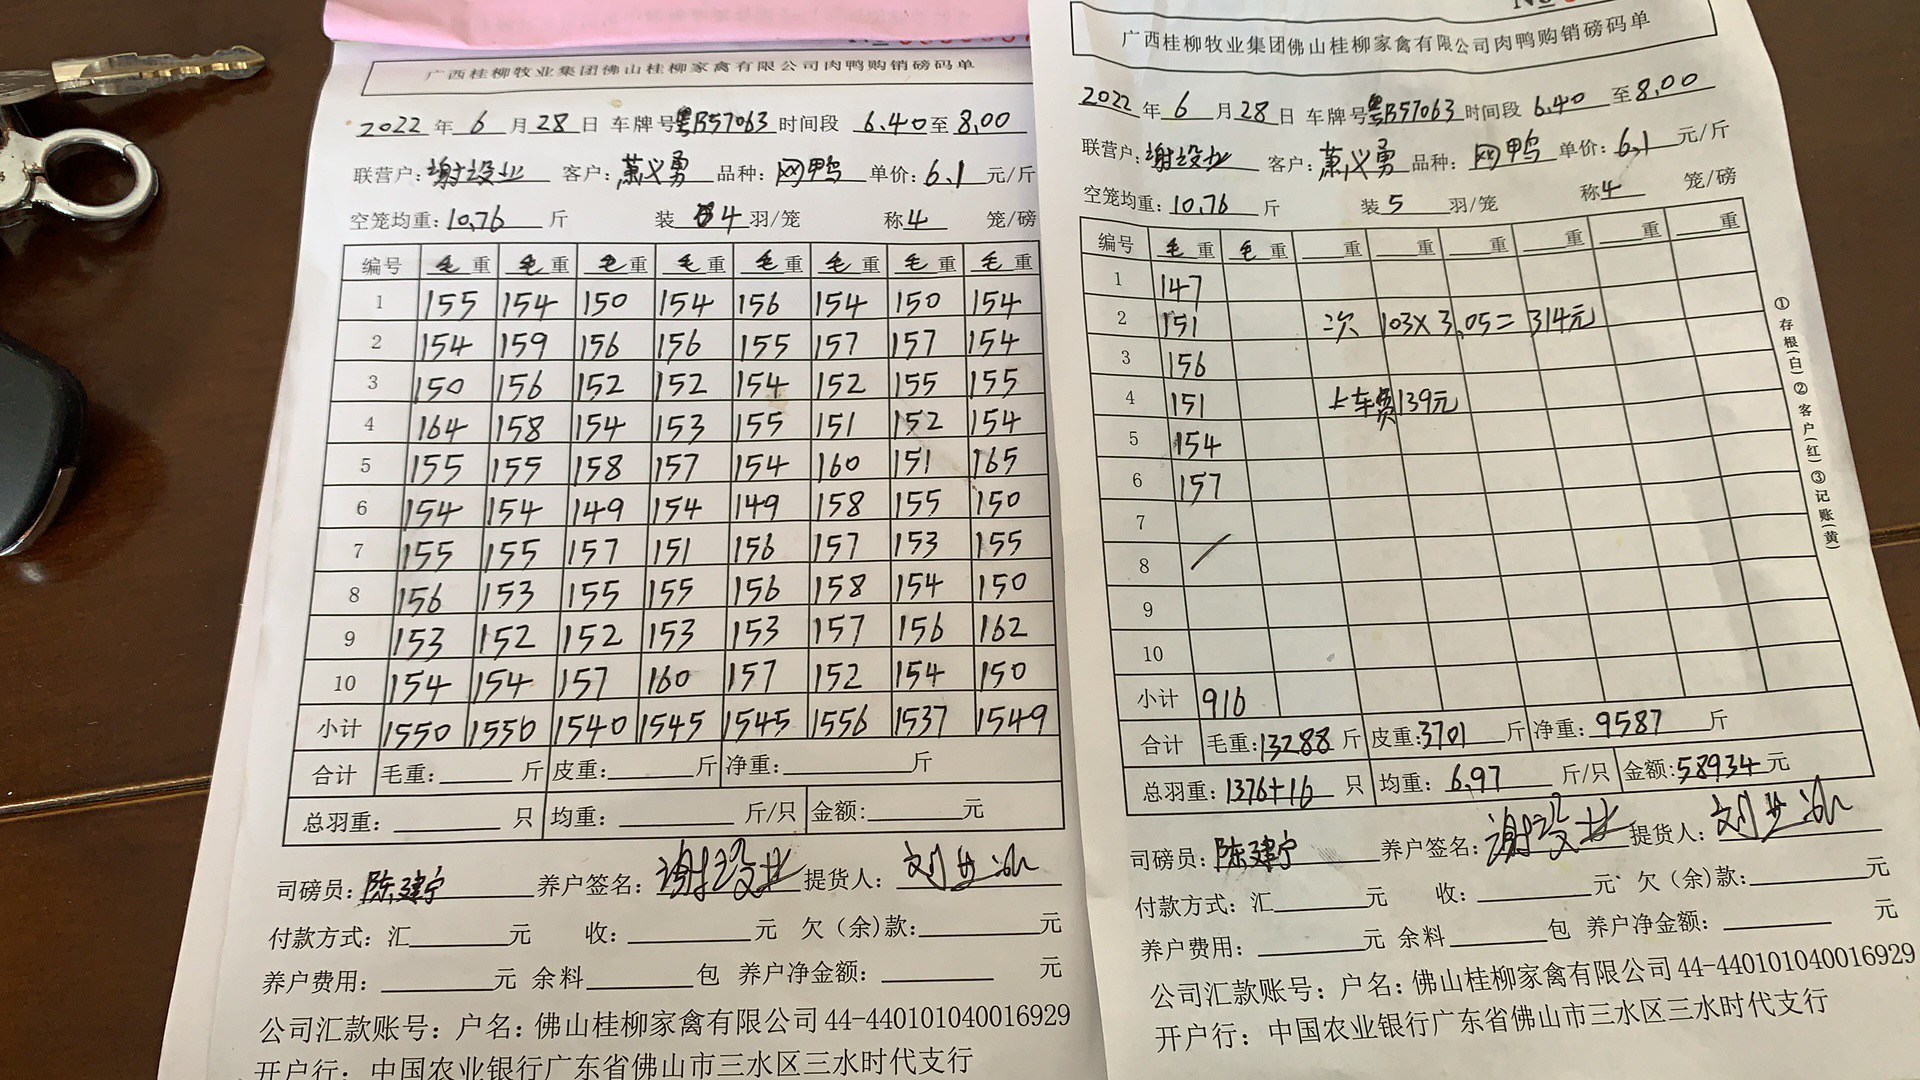 广西桂柳牧业集团佛山桂柳家禽有限公司肉鸭购销磅码单
2022年6月28日 车牌号粤B57063时间段 6.40至8.00
联营户:谢设业 客户:萧义勇 品种:网鸭 单价:6.1元/斤
空笼均重:10.76斤 装4羽/笼 称4笼/磅
编号 毛重 毛重 毛重 毛重 毛重 毛重 毛重 毛重
1 155 154 150 154 156 154 150 154
2 154 159 156 156 155 157 157 154
3 150 156 152 152 154 152 155 155
4 164 158 154 153 155 151 152 154
5 155 155 158 157 154 160 151 165
6 154 154 149 154 149 158 155 150
7 155 155 157 151 156 157 153 155
8 156 153 155 155 156 158 154 150
9 153 152 152 153 153 157 156 162
10 154 154 157 160 157 152 154 150
小计 1550 1550 1540 1545 1545 1556 1537 1549
合计 毛重:斤 皮重:斤 净重:斤
总羽重:只 均重:斤/只 金额:元
司磅员:陈建宁 养户签名:谢设业 提货人:
付款方式:汇元 收:元 欠(余)款:元
养户费用:元 余料包 养户净金额:元
公司汇款账号:户名:佛山桂柳家禽有限公司44-440101040016929
开户行:中国农业银行广东省佛山市三水区三水时代支行
No
广西桂柳牧业集团佛山桂柳家禽有限公司肉鸭购销磅码单
2022年6月28日 车牌号粤B57063时间段 6.40至8.00
联营户:谢设业 客户:萧义勇 品种:网鸭 单价:6.1元/斤
空笼均重:10.76斤 装5羽/笼 称4笼/磅
编号 毛重 毛重 重 重 重 重 重 重
1 147
2 151 次 103×3.05=314元
3 156
4 151 上车费139元
5 154
6 157
7
8
9
10
小计 916
合计 毛重:13288斤 皮重:3701斤 净重:9587斤
总羽重:1376+16只 均重:6.97斤/只 金额:58934元
司磅员:陈建宁 养户签名:谢设业 提货人:
付款方式:汇元 收:元 欠(余)款:元
养户费用:元 余料包 养户净金额:元
公司汇款账号:户名:佛山桂柳家禽有限公司44-440101040016929
开户行:中国农业银行广东省佛山市三水区三水时代支行
①存根(白)②客户(红)③记账(黄)